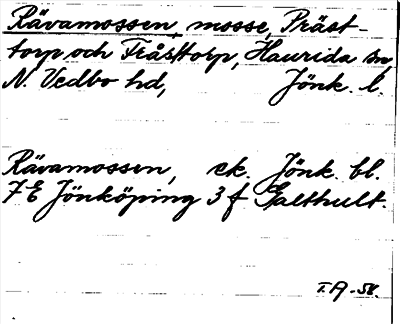 Rävamossen, mosse, Präst-
torp och Fråsttorp, Haurida sn,
N. Vedbo hd, Jönk. l.
Rävamossen, ek. Jönk. bl.
7 E Jönköping 3 f Galthult.
T.A-58.